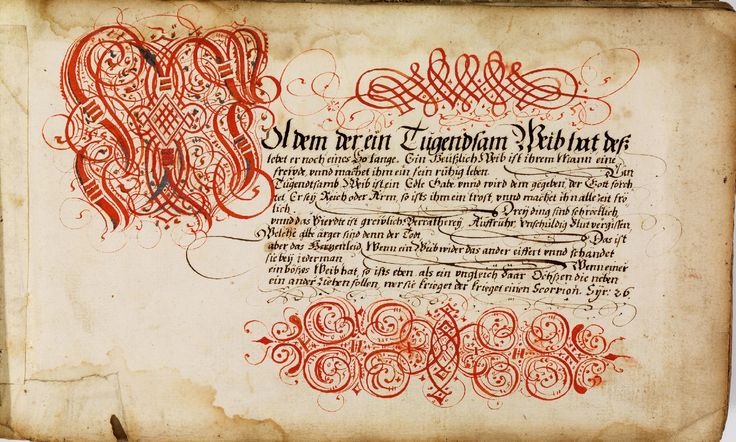 Wol dem der ein Tugendsam Weib hat deß
lebet er noch eines So lange. Ein Heüßlich Weib ist ihrem Mann eine
freüde, vnnd machet ihm ein fein rühig leben. Ein
Tugendsamb Weib ist ein Edle Gabe, vnnd wird dem gegeben, der Gott förch
tet. Er seÿ Reich oder Arm, so ists ihm ein trost, vnnd machet ihn alle Zeit frö
lich. Dreÿ ding sind schröcklich,
vnnd das Vierdte ist greẅlich: Verräthereÿ, Auffruhr, vnschuldig Blut vergissen,
Welche alle ärger sind denn der Tod. Das ist
aber das Hertzenleid, Wenn ein Weib wider das ander eiffert vnnd schandet
sie beÿ iederman Wenn einer
ein bößes Weib hat, so ists eben als ein vngleich Paar Ochßen die neben
ein ander Ziehen sollen, wer sie krieget der krieget einen Scorpion. Sÿr: 26